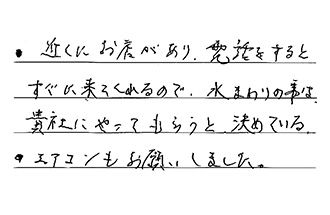 • 近くにお店があり、電話をすると
すぐに来てくれるので、水まわりの事は
貴社にやってもらうと決めている。
• エアコンもお願いしました。